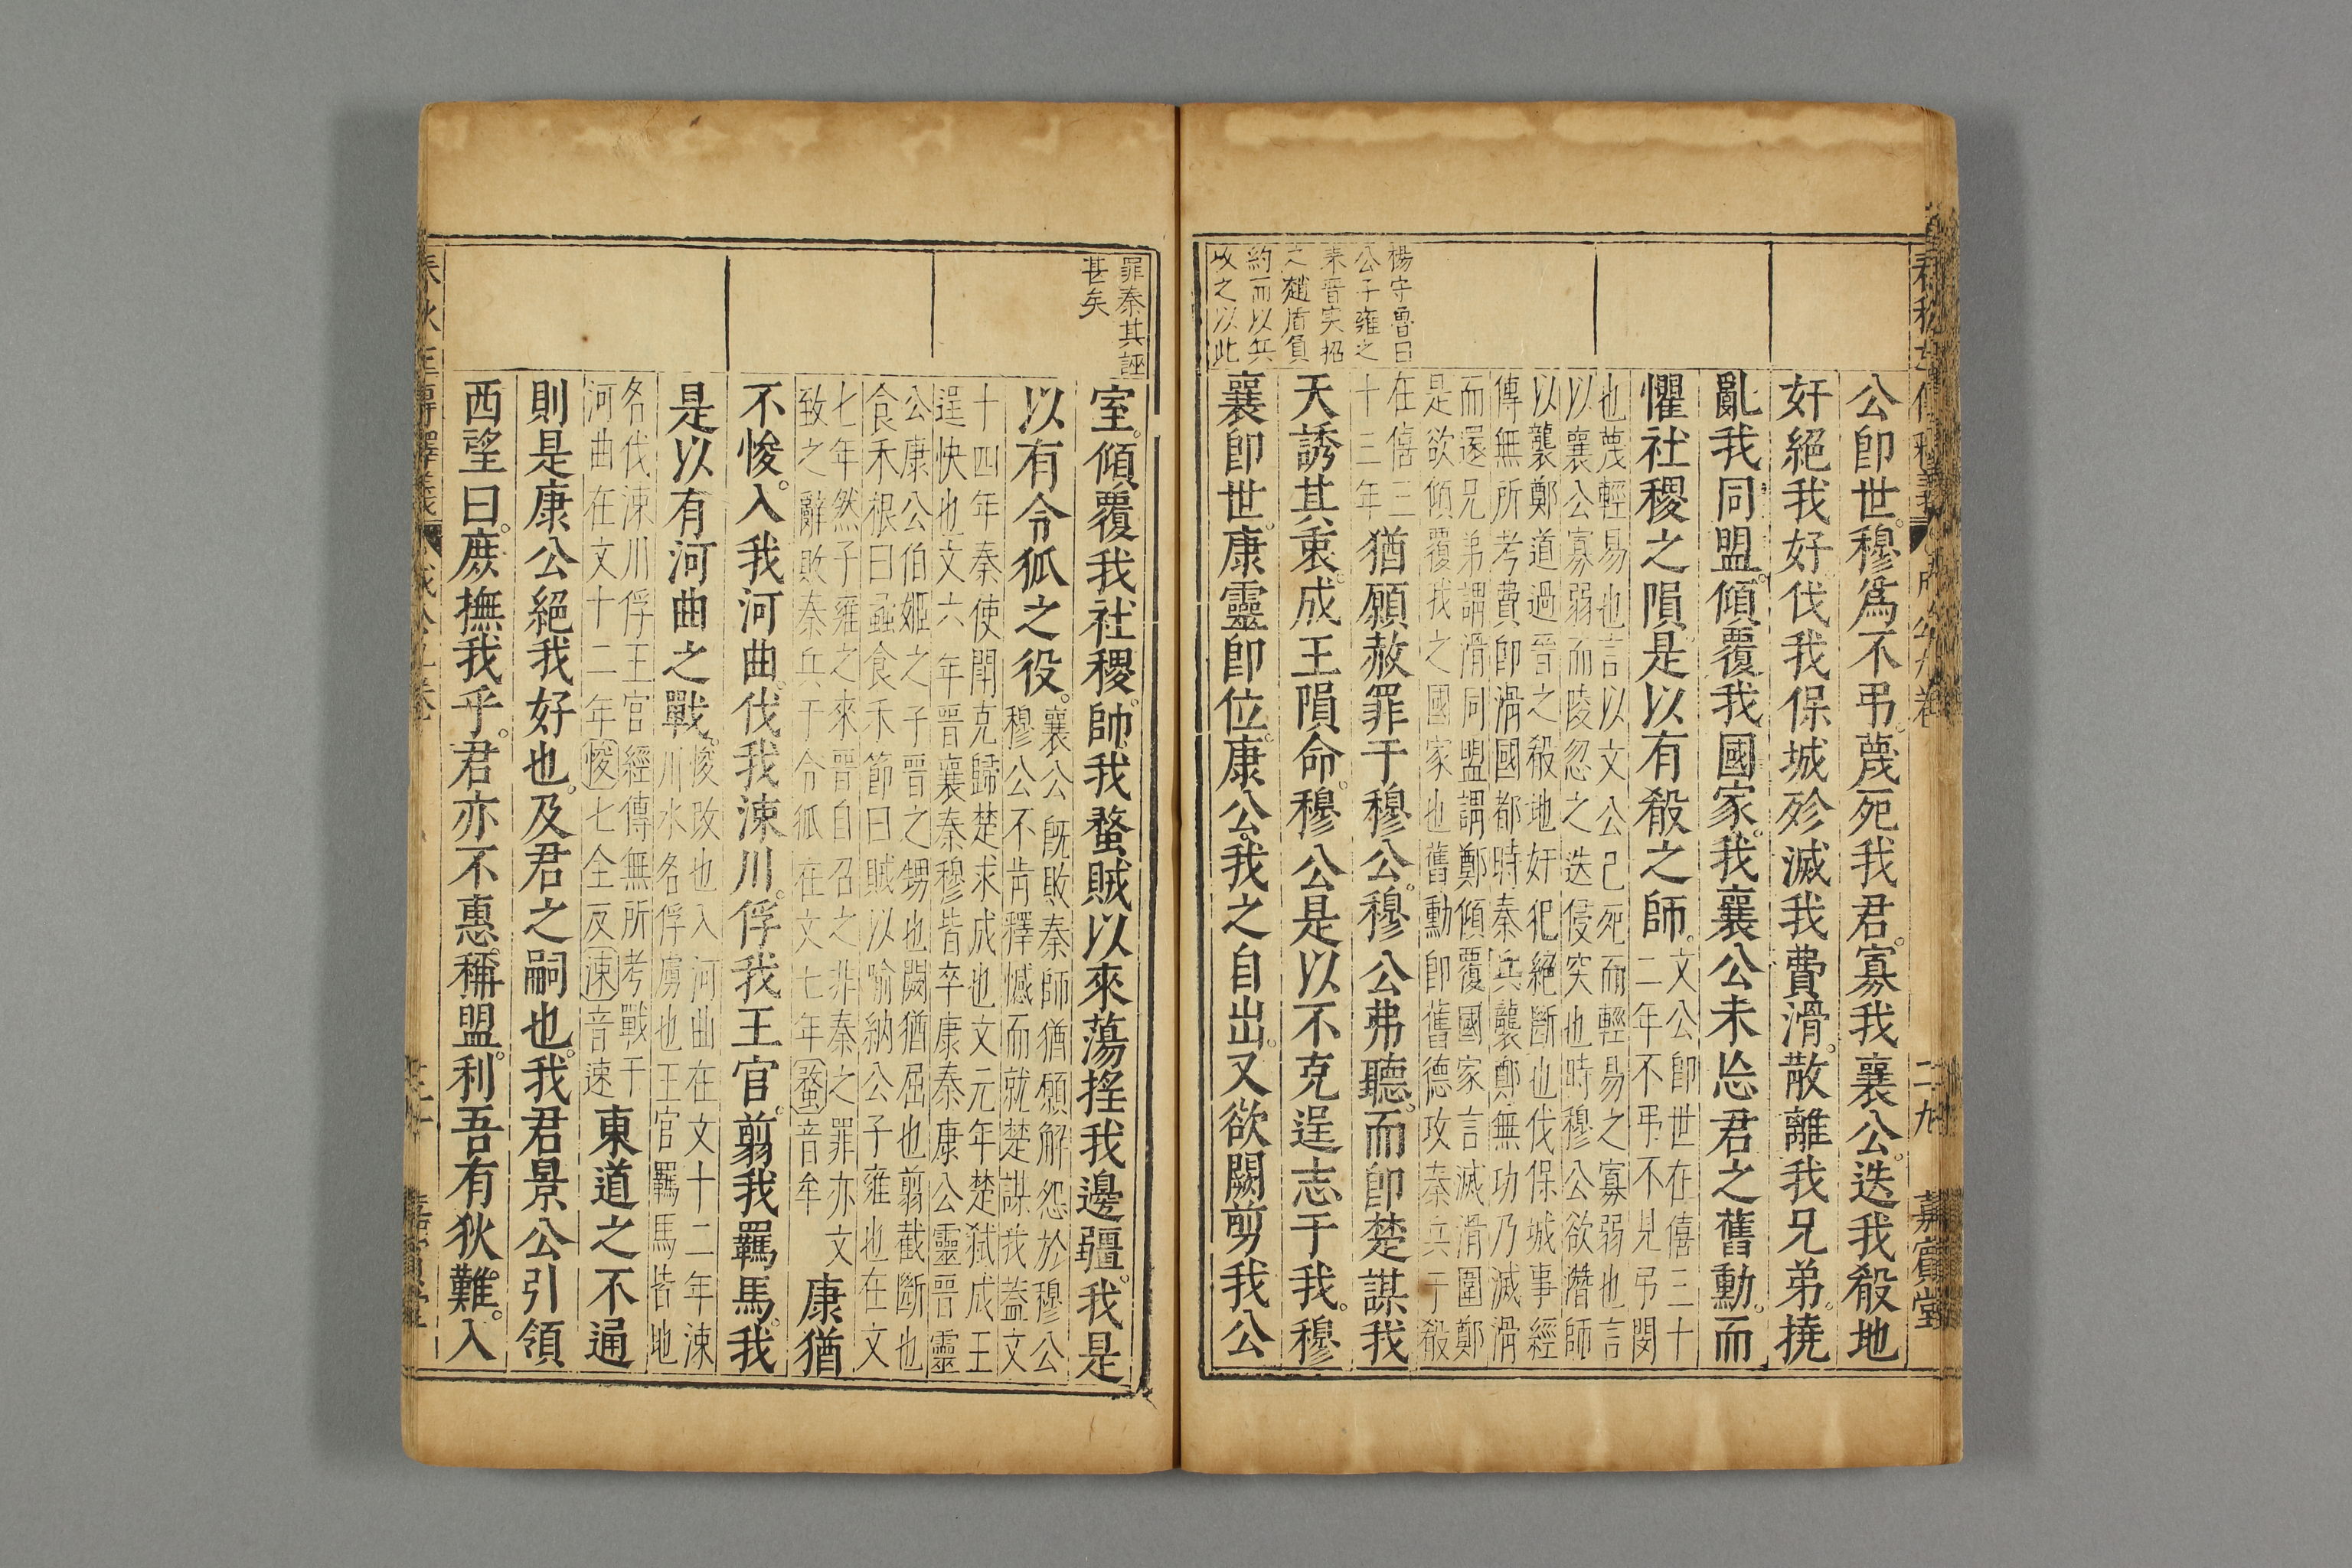 楊守魯曰
公子雍之
来晉实招
之趙盾負
約而以兵
攻之以此
公卽世穆爲不弔蔑死我君寡我襄公迭我殽地
奸絕我好伐我保城殄滅我費滑散離我兄弟撓
亂我同盟傾覆我國家我襄公未忘君之舊勳而
懼社稷之隕是以有殽之師
文公卽世在僖三十
二年不弔不見弔閔
也蔑輕易也言以文公已死而輕易之寡弱也言
以襄公寡弱而陵忽之迭侵突也時穆公欲潛師
以襲鄭道過晉之殽地奸犯絕斷也伐保城事經
傳無所考費卽滑國都時秦兵襲鄭無功乃滅滑
而還兄弟謂滑同盟謂鄭傾覆國家言滅滑圍鄭
是欲傾覆我之國家也舊勳卽舊德攻秦兵于殽
在僖三
十三年
猶願赦罪于穆公穆公弗聽而卽楚謀我
天誘其衷成王隕命穆公是以不克逞志于我穆
襄卽世康靈卽位康公我之自出又欲闕剪我公
罪秦其誣
甚矣
室傾覆我社稷帥我蝥賊以來蕩搖我邊疆我是
以有令狐之役
襄公旣敗秦師猶願解怨於穆公
穆公不肯釋憾而就楚謀我蓋文
十四年秦使鬥克歸楚求成也文元年楚弒成王
逞快也文六年晉襄秦穆皆卒康秦康公靈晉靈
公康公伯姬之子晉之甥也闕猶屈也翦截斷也
食禾根曰蟊食禾節曰賊以喻納公子雍也在文
七年然子雍之來晉自召之非秦之罪亦文
致之辭敗秦兵于令狐在文七年蝥音牟
康猶
不悛入我河曲伐我涑川俘我王官翦我羈馬我
是以有河曲之戰
悛改也入河曲在文十二年涑
川水名俘虜也王官羈馬皆地
名伐涑川俘王官經傳無所考戰于
河曲在文十二年悛七全反涑音速
東道之不通
則是康公絕我好也及君之嗣也我君景公引領
西望曰庶撫我乎君亦不惠稱盟利吾有狄難入